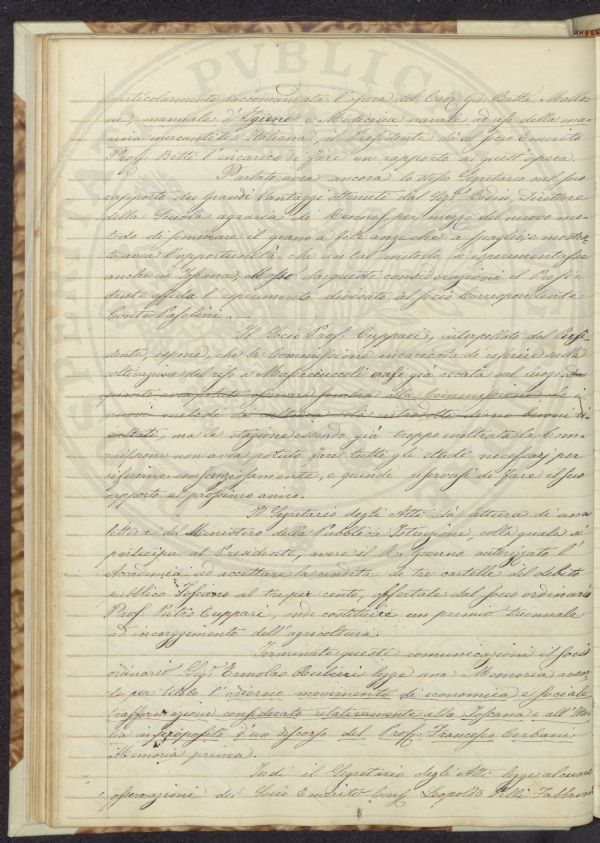 particolarmente raccomandata l'opera del Cav. Gio. Batta Massone,
ne, manuale d'Igiene e Medicina navale ad uso della ma-
rina mercantile Italiana, il Presidente dà al socio emerito
Prof. Betti l'incarico di fare un rapporto di quest'opera.
Parlato avea ancora lo stesso Segretario nel suo
rapporto dei grandi vantaggi ottenuti dal Sig.r Bodin, Direttore
della Scuola agraria di Rennes, per mezzo del nuovo me-
todo di seminare il grano a file anzichè a spaglio, e mostra-
ta avea l'opportunità che un tal metodo si esperimentasse
anche in Toscana, Mosso da queste considerazioni il Presi-
dente affida l'esperimento divisato al socio Corrispondente
Conte Pasolini. —
Il Socio Prof. Cuppari, interpellato dal Presi-
dente, espone, che la Commissione incaricata di riferire sulla
coltivazione del riso a Massaciuccoli erasi già recata sul luogo,
quanto alla Commissione che i
nuovi metodi di cultura ivi introdotti siano buoni ri-
sultati, ma la stagione essendo già troppo inoltrata la Com-
missione non avea potuto fare tutti gli studi necessarj per
riferire conscenziosamente, e quindi riservasi di fare il suo
rapporto al prossimo anno.
Il Segretario degli Atti dà lettura di una
lettera del Ministero della Pubblica Istruzione, colla quale si
partecipa al Presidente, avere il R. Governo autorizzato l'
Accademia ad accettare la rendita di tre cartelle del debito
pubblico Toscano al tre per cento, offertale dal socio ordinario
Prof. Pietro Cuppari, onde costituire un premio triennale
ad incoraggimento dell'agricoltura.
Terminate queste comunicazioni il Socio
ordinario Sig.r Ermolao Rubieri legge una Memoria aven-
te per titolo l'odierno movimento di economica e sociale
trasformazione considerato relativamente alla Toscana e all'Ita-
lia in proposito d'un discorso del Prof. Francesco Corbani
Memoria prima.
Indi il Segretario degli Atti legge alcune
osservazioni del Socio Emerito Cav. Leopoldo Pelli Fabbroni